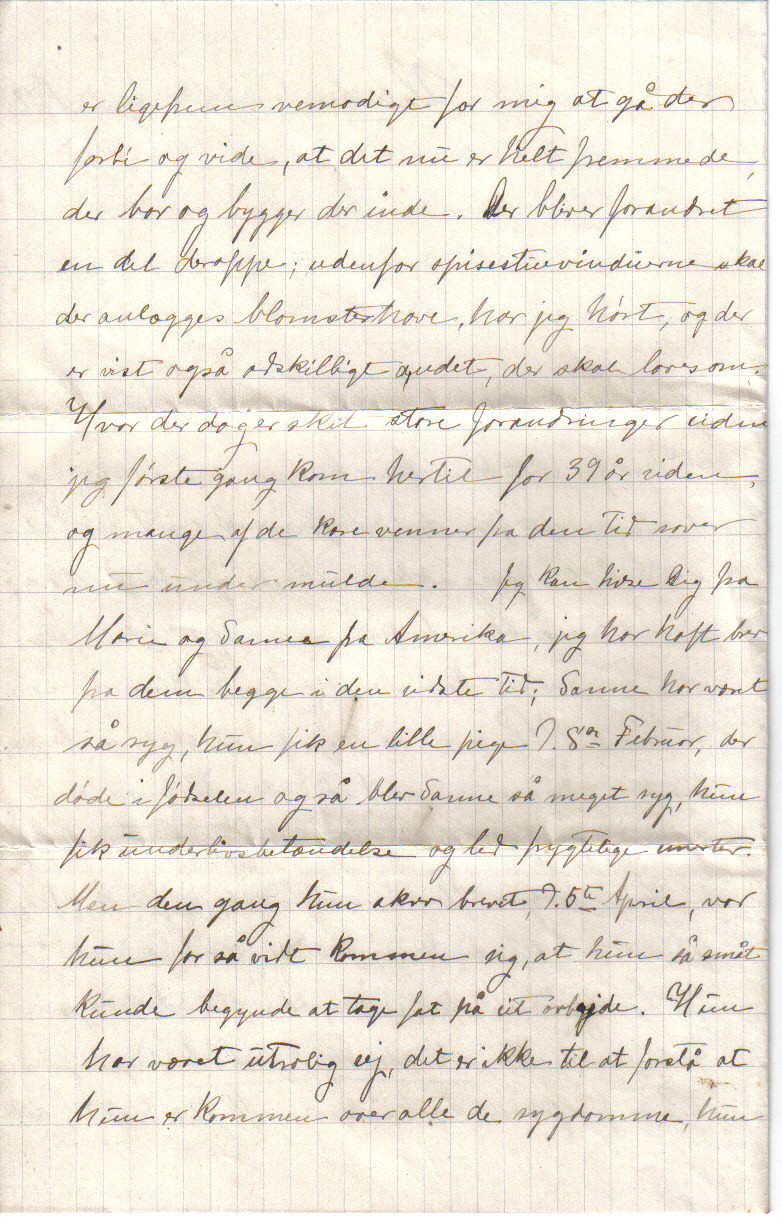 er ligesom vemodigt for mig at gå der
forbi og vide, at det nu er helt fremmede,
der bor og bygger der inde. Der bliver forandret
en del deroppe; udenfor spisestuevinduerne skal
der anlægges blomsterhave, har jeg hørt, og der
er vist også adskilligt andet, der skal laves om.
Hvor der dog er sket store forandringer siden
jeg første gang kom hertil for 39 år siden,
og mange af de kære venner fra den tid sover
nu under mulde. Jeg kan hilse Dig fra
Marie og Sanne fra Amerika, jeg har haft brev
fra dem begge i den sidste tid; Sanne har været
så syg, hun fik en lille pige d. 8de Februar, der
døde i fødselen og så blev Sanne så meget syg, hun
fik underlivsbetændelse og led frygtelige smerter.
Men den gang hun skrev brevet, d. 5te April, var
hun for så vidt kommen sig, at hun så småt
kunde begynde at tage fat på sit arbejde. Hun
har været utrolig sej, det er ikke til at forstå at
hun er kommen over alle de sygdomme, hun